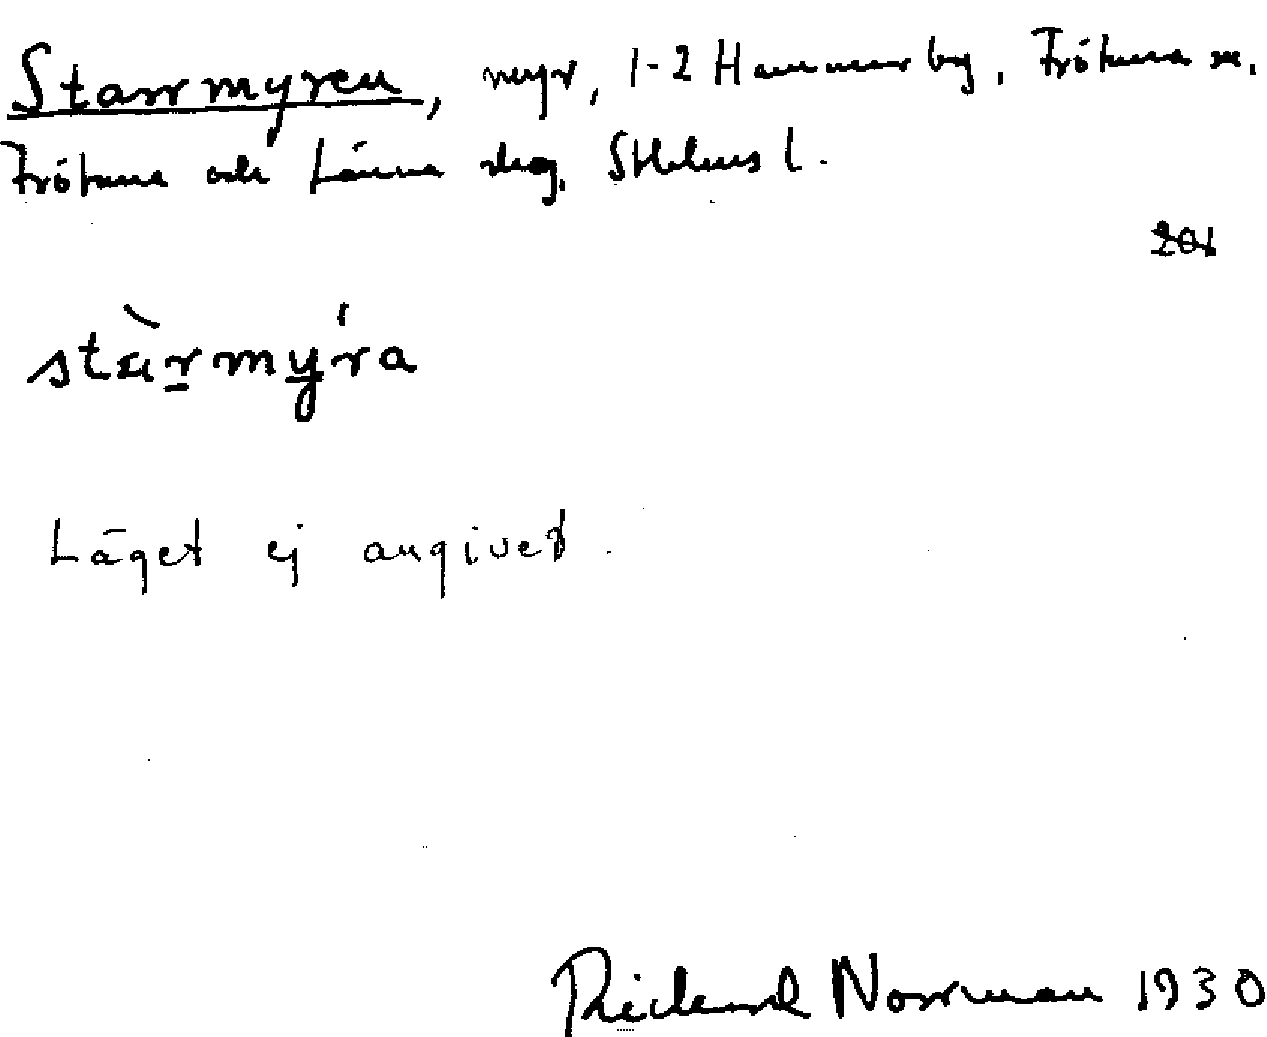 Starrmyren, myr, 1-2 Hammarby, Frötuna sn,
Frötuna och Länna skg, Sthlms l.
201
stàrmý̱ra
Läget ej angivet.
Rickard Norrman 1930